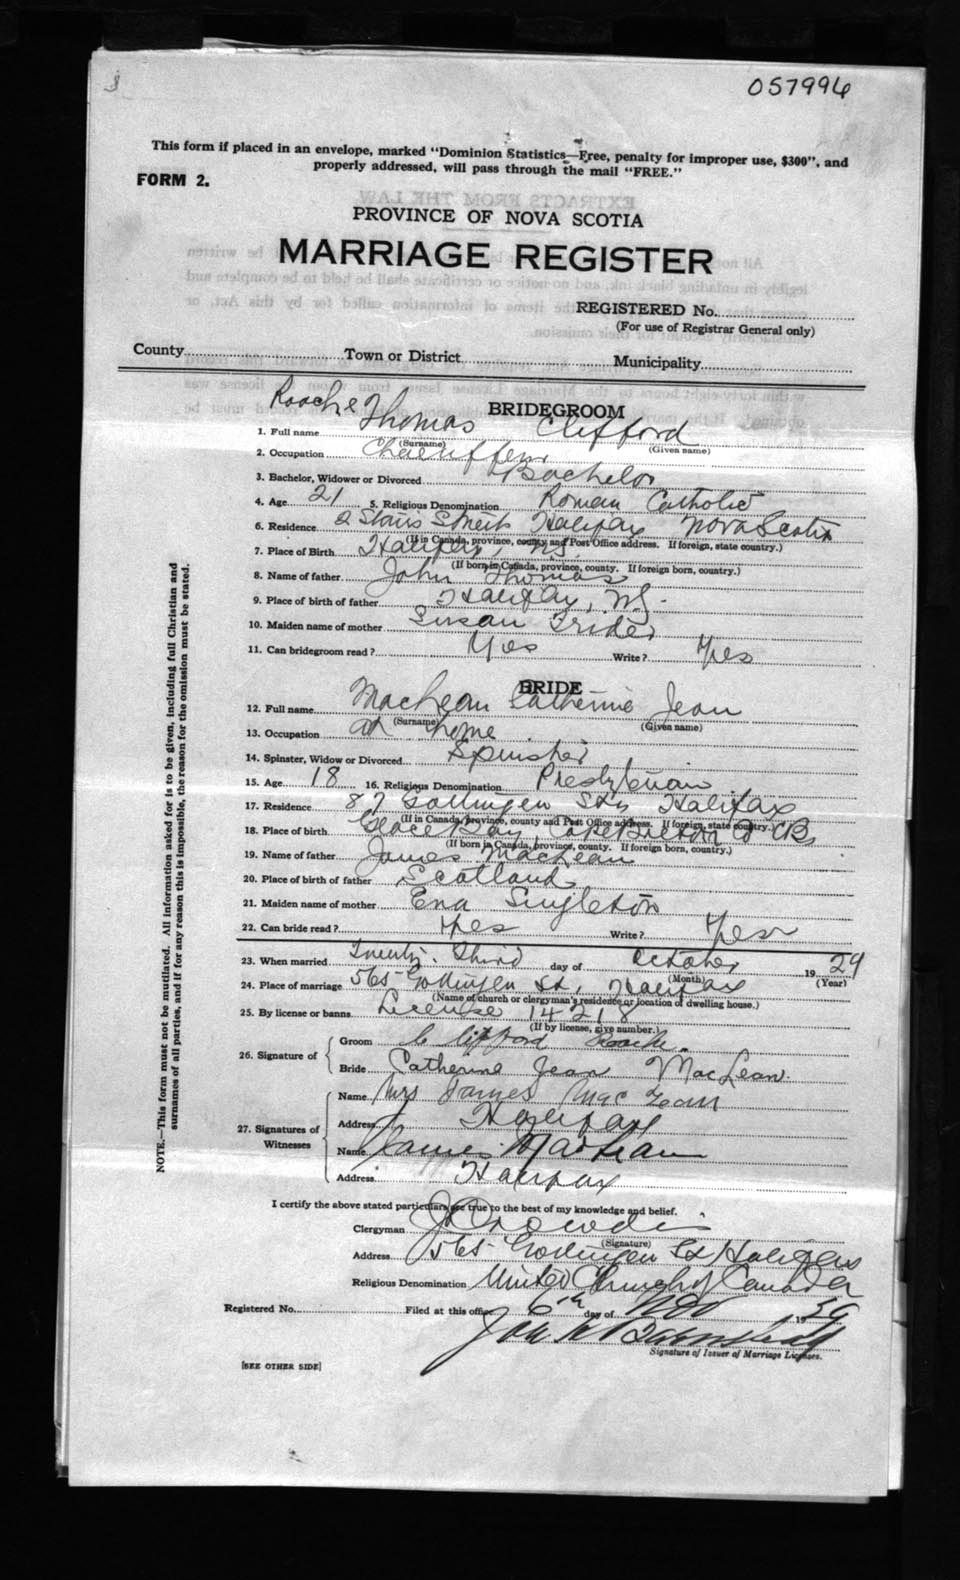 057994
This form if placed in an envelope, marked "Dominion Statistics—Free, penalty for improper use, $300", and
properly addressed, will pass through the mail "FREE."
FORM 2.
PROVINCE OF NOVA SCOTIA
MARRIAGE REGISTER
REGISTERED No.
(For use of Registrar General only)
County Town or District Municipality
BRIDEGROOM
1. Full name Roache Thomas Clifford
(Surname) (Given name)
2. Occupation
3. Bachelor, Widower or Divorced Bachelor
4. Age 21 5. Religious Denomination Roman Catholic
6. Residence 2 Stairs Street Halifax Nova Scotia
(If in Canada, province, county and Post Office address. If foreign, state country.)
7. Place of Birth Halifax, N.S.
(If born in Canada, province, county. If foreign born, country.)
8. Name of father John Thomas
9. Place of birth of father Halifax, N.S.
10. Maiden name of mother Susan
11. Can bridegroom read? Yes Write? Yes
BRIDE
12. Full name MacLean Catherine Jean
(Surname) (Given name)
13. Occupation at home
14. Spinster, Widow or Divorced Spinster
15. Age 18 16. Religious Denomination Presbyterian
17. Residence 87 Gottingen St., Halifax
(If in Canada, province, county and Post Office address. If foreign, state country.)
18. Place of birth Glace Bay, Cape Breton Co CB
(If born in Canada, province, county. If foreign born, country.)
19. Name of father James MacLean
20. Place of birth of father Scotland
21. Maiden name of mother Ena Singleton
22. Can bride read? Yes Write? Yes
23. When married Twenty Third day of October 1929
(Month) (Year)
24. Place of marriage 565 Gottingen St, Halifax
(Name of church or clergyman's residence or location of dwelling house.)
25. By license or banns License 14218
(If by license, give number.)
26. Signature of
Groom C Clifford Roache.
Bride Catherine Jean MacLean.
27. Signatures of Witnesses
Name Mrs James MacLean
Address Halifax
Name James MacLean
Address Halifax
I certify the above stated particulars are true to the best of my knowledge and belief.
Clergyman
(Signature)
Address 565 Gottingen St Halifax
Religious Denomination United Church of Canada
Registered No. Filed at this office 6th day of Nov 19
Signature of Issuer of Marriage Licenses.
[SEE OTHER SIDE]
NOTE.—This form must not be mutilated. All information asked for is to be given, including full Christian and
surnames of all parties, and if for any reason this is impossible, the reason for the omission must be stated.